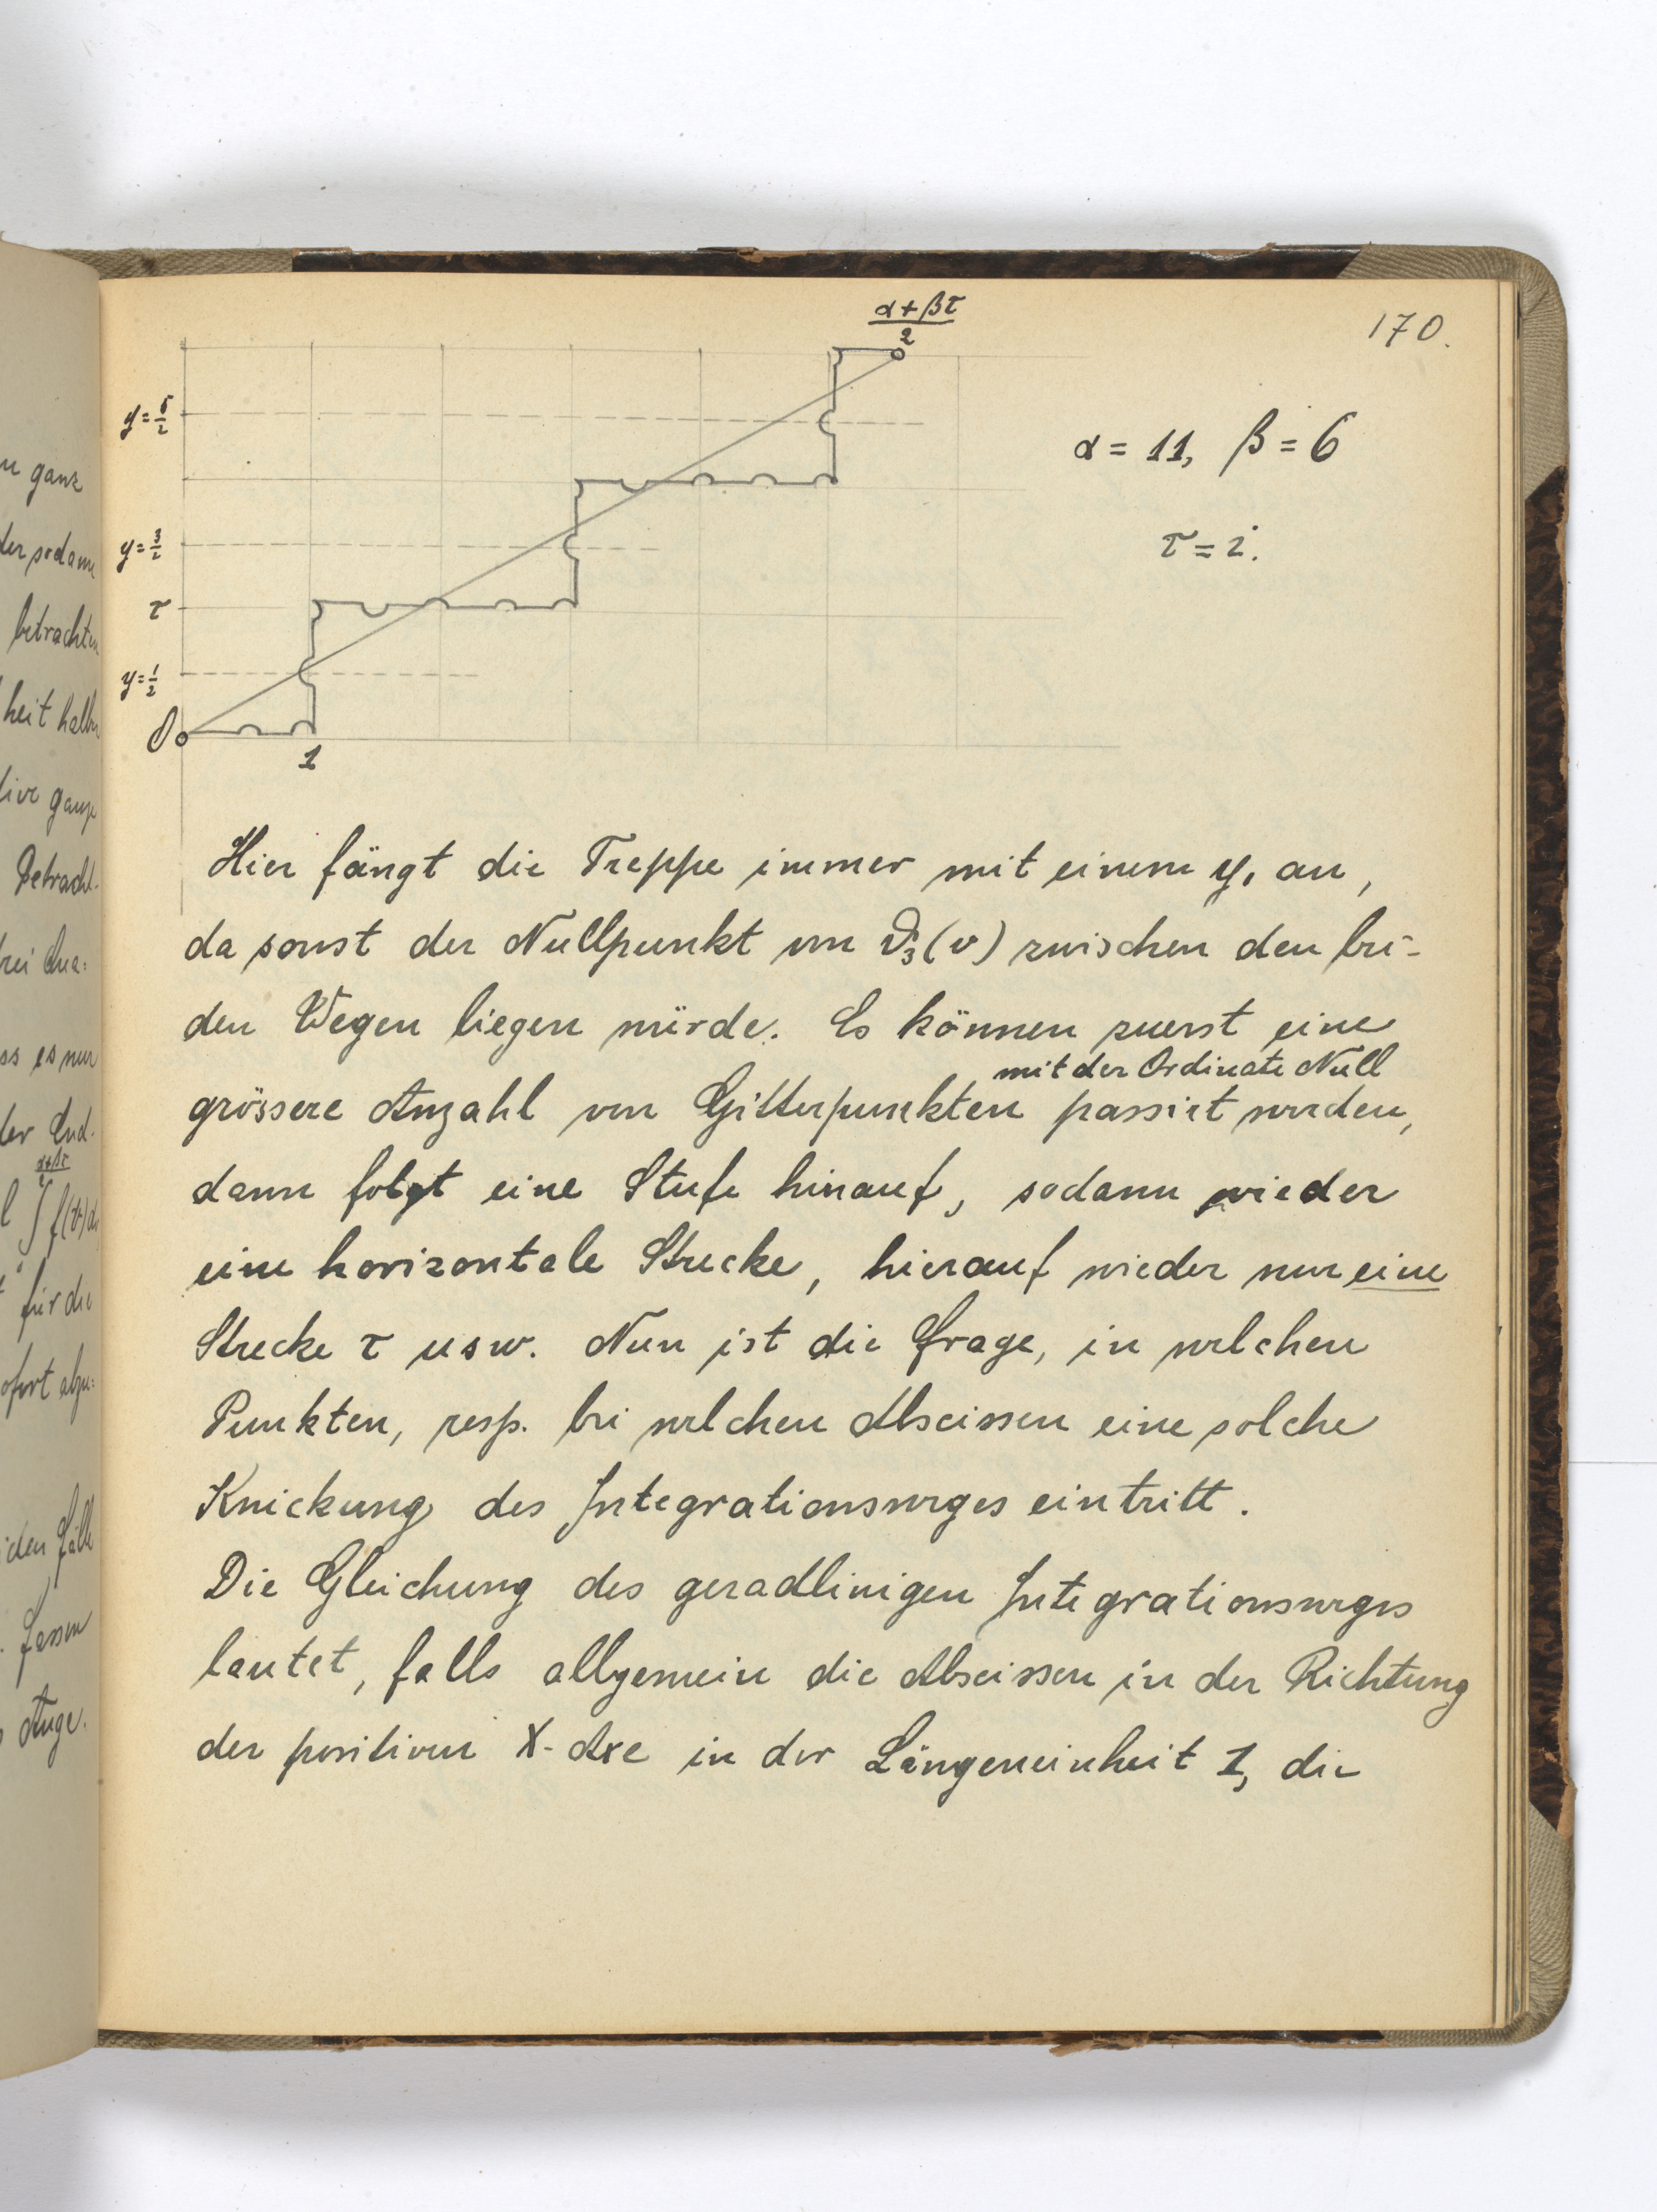 170.
α+βτ
2
y=5/2
α = 11, β = 6
y=3/2
τ = i.
τ
y=1/2
0
1
Hier fängt die Treppe immer mit einem y, an,
da sonst der Nullpunkt von ϑ₃(v) zwischen den bei-
den Wegen liegen würde. Es können zuerst eine
mit der Ordinate Null
grössere Anzahl von Gitterpunkten passirt werden,
dann folgt eine Stufe hinauf, sodann wieder
eine horizontale Strecke, hierauf wieder nur eine
Strecke τ usw. Nun ist die Frage, in welchen
Punkten, resp. bei welchen Abscissen eine solche
Knickung des Integrationsweges eintritt.
Die Gleichung des geradlinigen Integrationsweges
lautet, falls allgemein die Abscissen in der Richtung
der positiven X-Axe in der Längeneinheit 1, die
u ganz
der sodann
betrachten
heit halber
tive ganze
Betracht-
rei Qua=
ss es nur
der End-
α+βτ
∫ f(v) d
für die
ofort abzu=
iden Fälle
fassen
Auge.